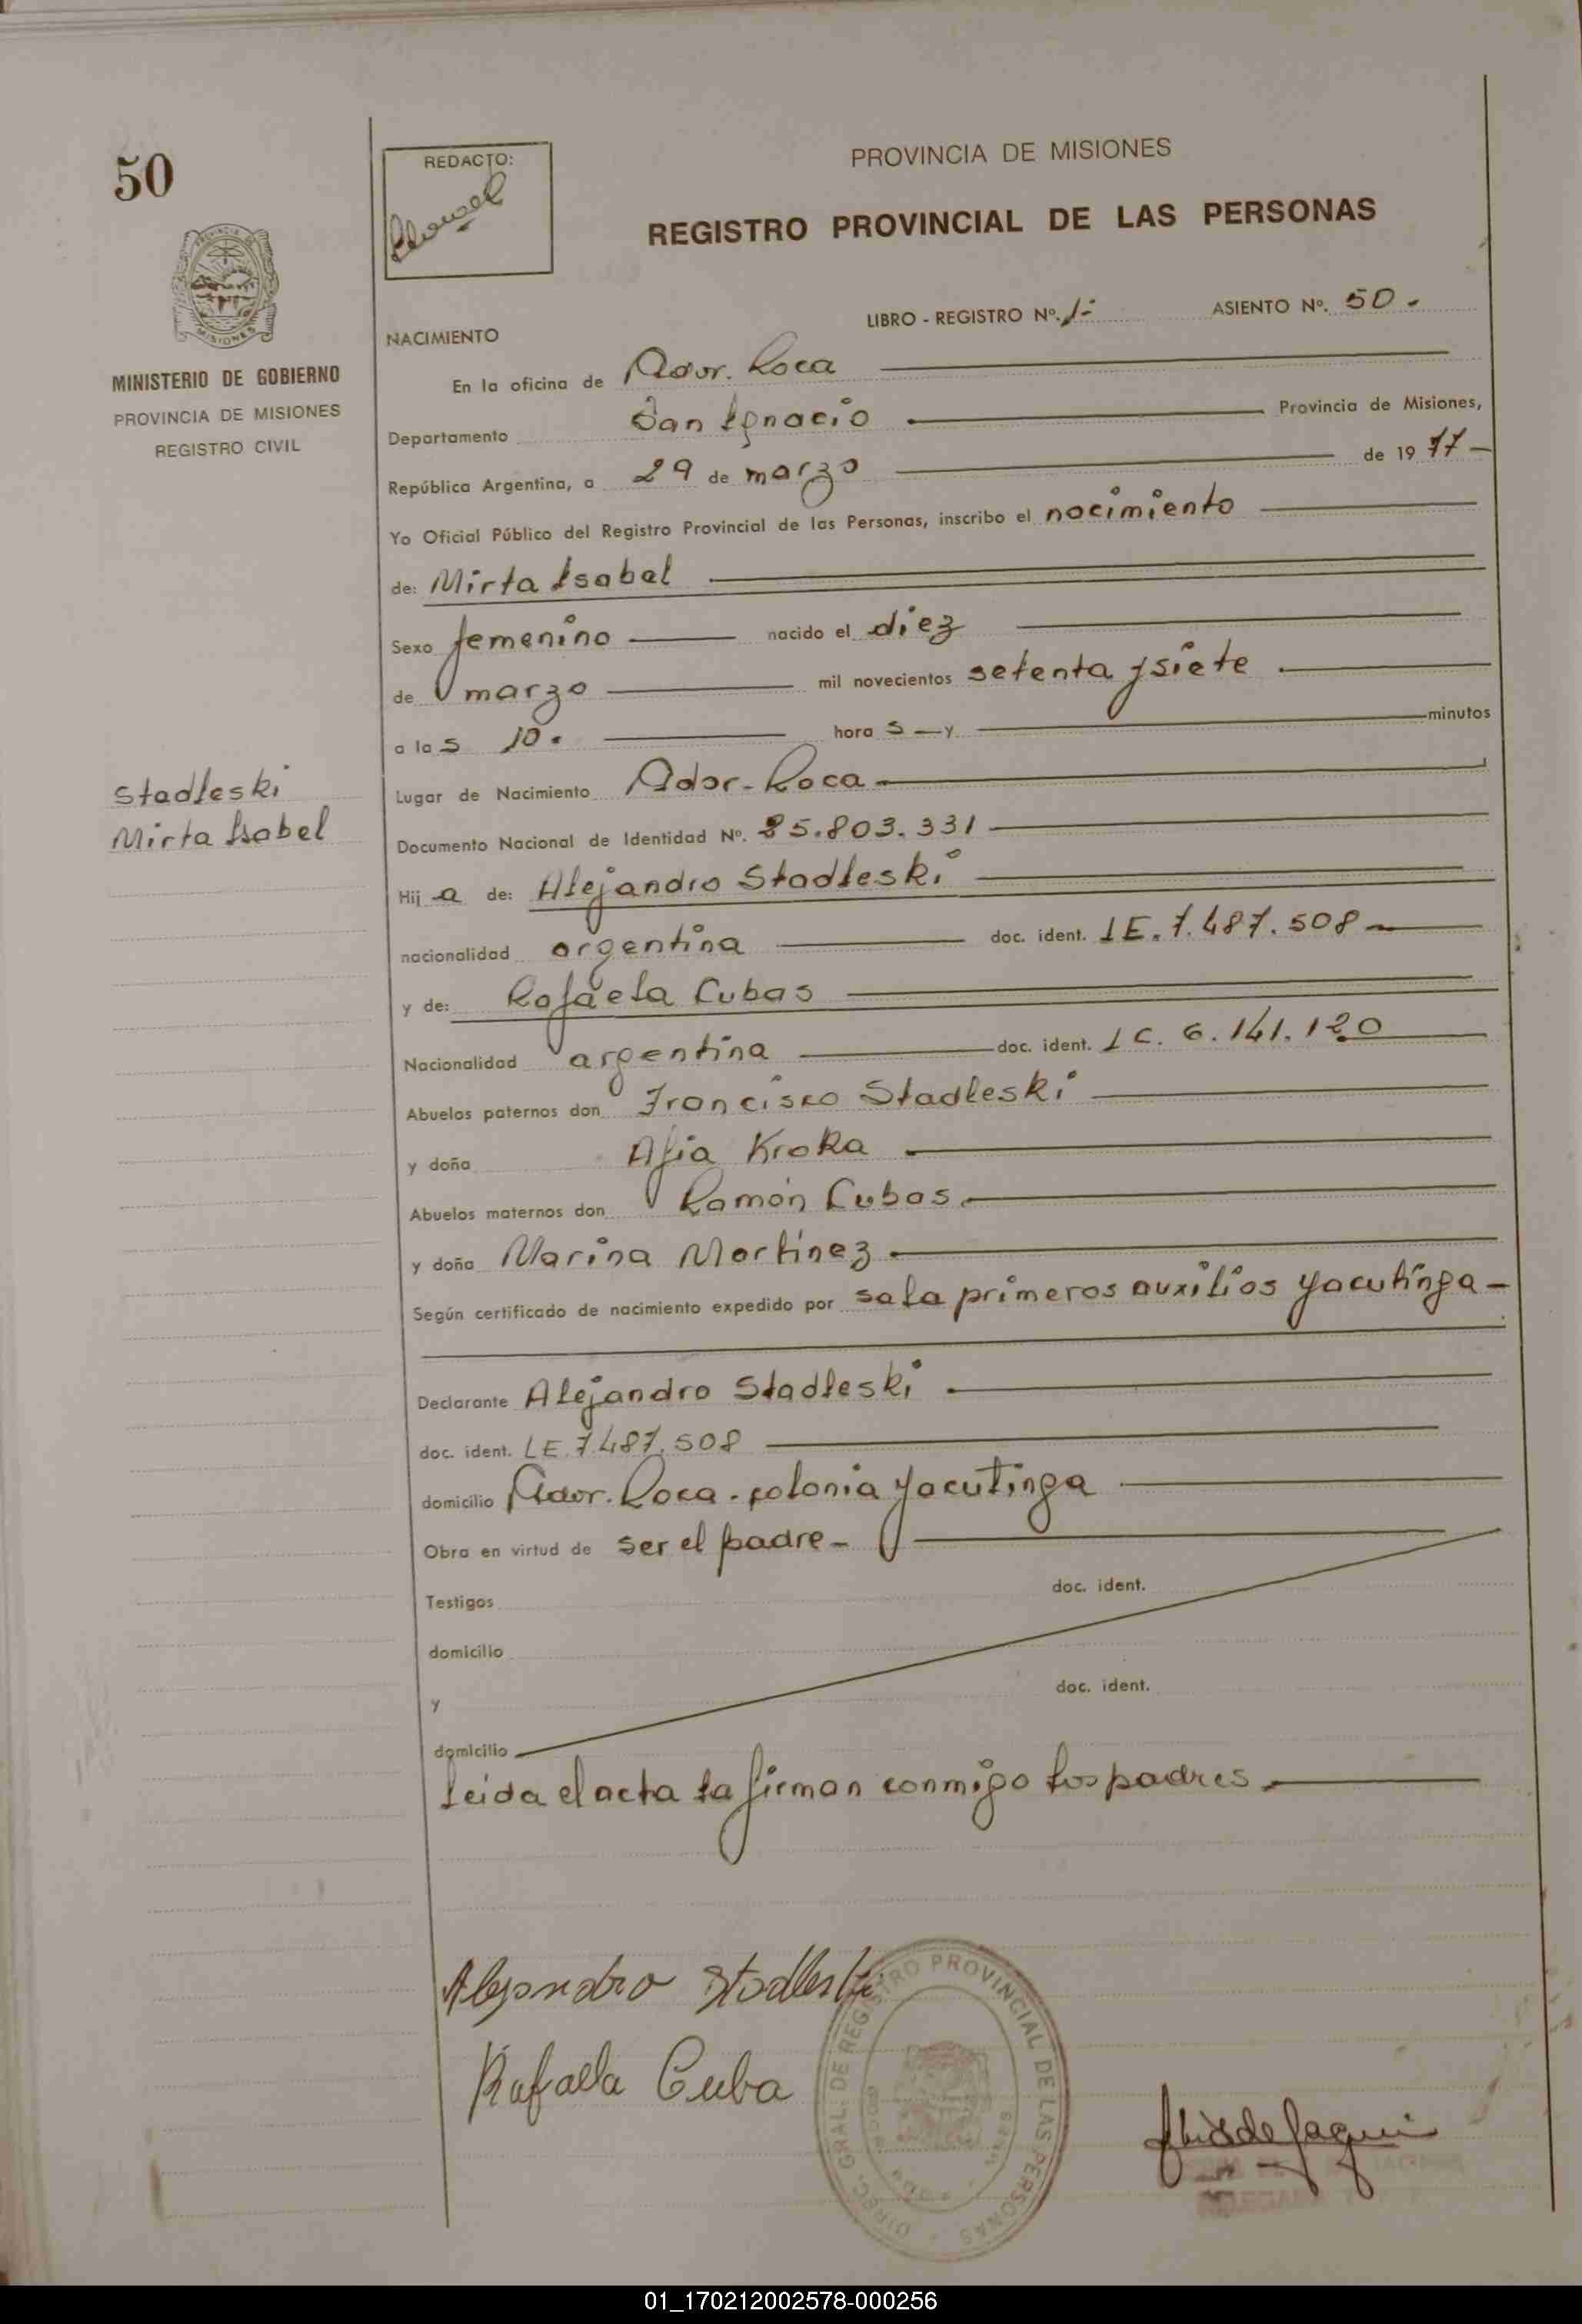 50
REDACTO:
PROVINCIA DE MISIONES
REGISTRO PROVINCIAL DE LAS PERSONAS
MINISTERIO DE GOBIERNO
PROVINCIA DE MISIONES
REGISTRO CIVIL
NACIMIENTO
LIBRO - REGISTRO Nº. 1- ASIENTO Nº. 50.-
En la oficina de Gdor. Roca
Departamento San Ignacio Provincia de Misiones,
República Argentina, a 29 de marzo de 1977-
Yo Oficial Público del Registro Provincial de las Personas, inscribo el nacimiento
de: Mirta Isabel
Sexo femenino nacido el diez
de marzo mil novecientos setenta y siete
a las 10. horas - y minutos
Stadleski
Mirta Isabel
Lugar de Nacimiento Gdor. Roca
Documento Nacional de Identidad Nº. 25.803.331
Hija de: Alejandro Stadleski
nacionalidad argentina doc. ident. LE. 7.487.508
y de: Rafaela Cubas
Nacionalidad argentina doc. ident. LC. 6.141.120
Abuelos paternos don Francisco Stadleski
y doña Afia Kroka
Abuelos maternos don Ramón Cubas
y doña Marina Martínez
Según certificado de nacimiento expedido por sala primeros auxilios Yacutinga-
Declarante Alejandro Stadleski
doc. ident. LE. 7.487.508
domicilio Gdor. Roca - colonia Yacutinga
Obra en virtud de ser el padre-
Testigos doc. ident.
domicilio
y doc. ident.
domicilio
Leida el acta la firman conmigo los padres.
Alejandro Stadleski
Rafaela Cuba
DIREC. GRAL. DE REGISTRO PROVINCIAL DE LAS PERSONAS
01_170212002578-000256